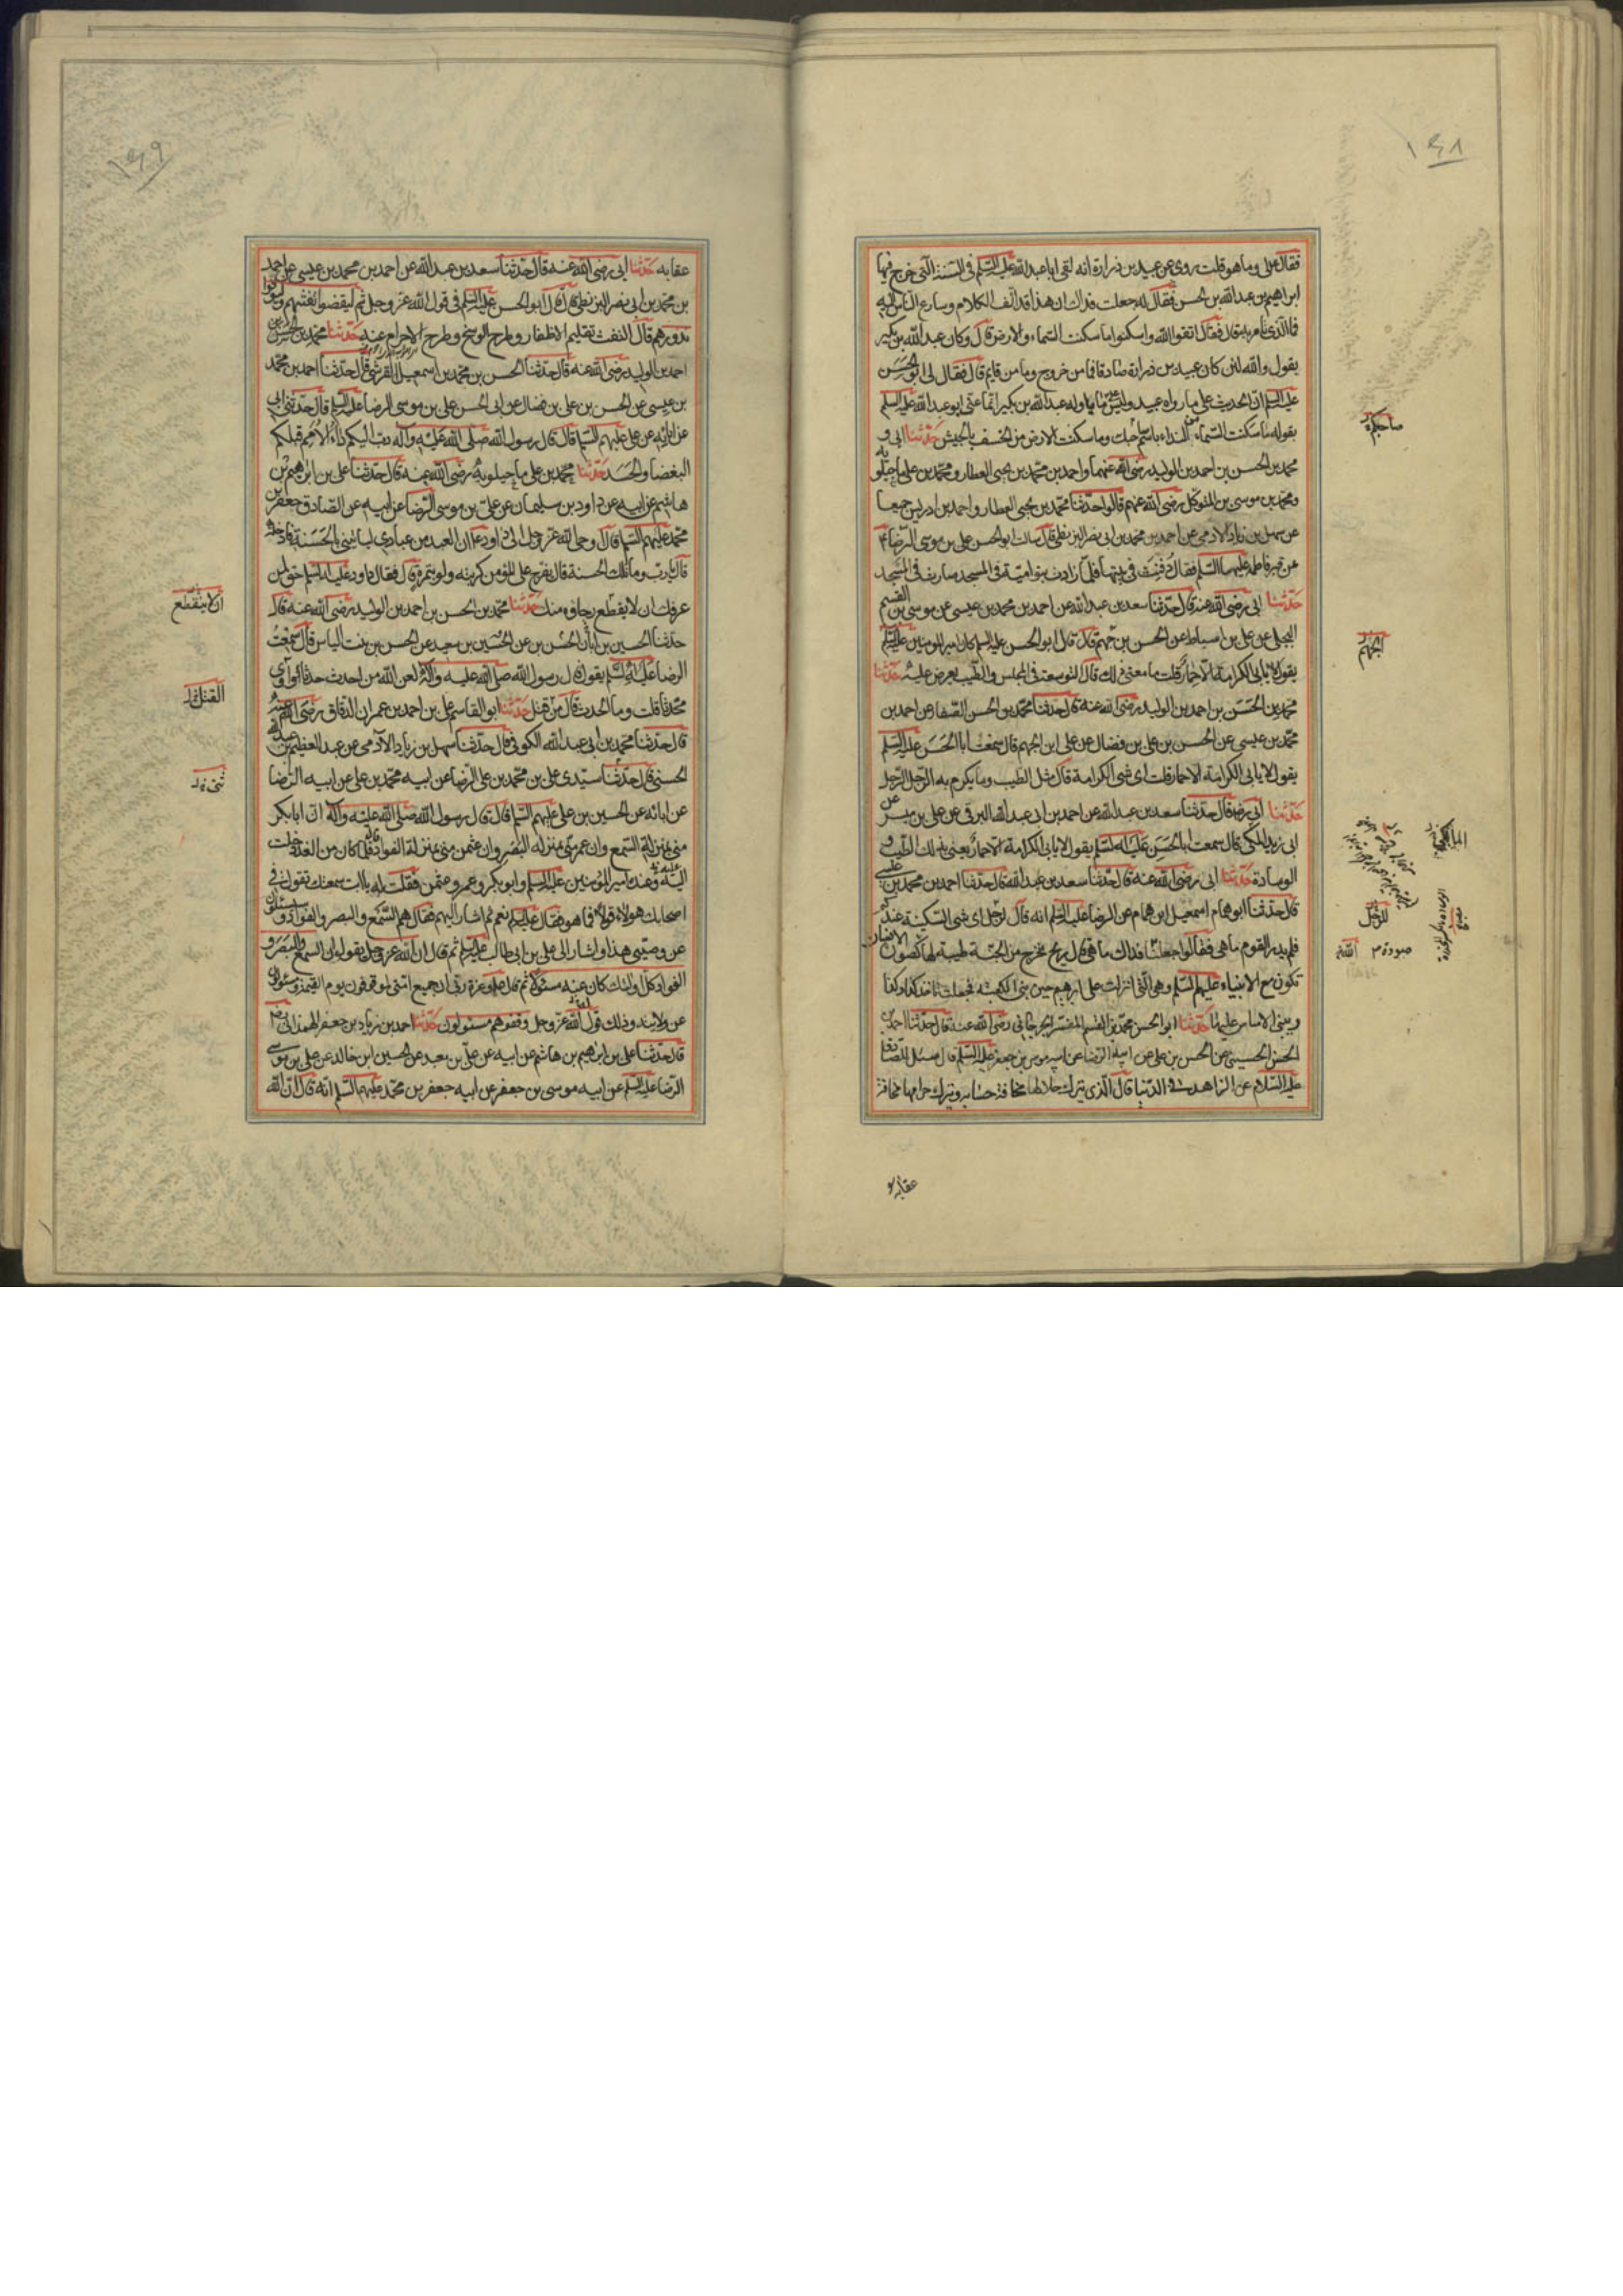 ١٤٨
فقال علی وما هو قلت روی عن عبید بن زرارة انه لقی ابا عبد الله علیه السلم فی السنة التی خرج فیها
ابراهیم بن عبد الله بن الحسن فقال له جعلت فداك ان هذا قد الف الکلام وسارع الناس الیه
فما الذی تامر به قال فقال اتقوا الله واسکنوا ما سکنت السماء والارض قال وکان عبد الله بن بکیر
یقول والله لئن کان عبید بن زرارة صادقا فما من خروج وما من قایم قال فقال لی ابو الحسن
علیه السلم ان الحدیث علی ما رواه عبید ولیس علی ما تاوله عبد الله بن بکیر انما عنی ابو عبد الله علیه السلم
بقوله ما سکنت السماء من النداء باسم صاحبك وما سکنت الارض من الخسف بالجیش حدثنا ابی و
محمد بن الحسن بن احمد بن الولید رضی الله عنهما واحمد بن محمد بن یحیی العطار ومحمد بن علی ماجیلویه
ومحمد بن موسی بن المتوکل رضی الله عنهم قالوا حدثنا محمد بن یحیی العطار واحمد بن ادریس جمیعا
عن سهل بن زیاد الادمی عن احمد بن محمد بن ابی نصر البزنطی قال سالت ابو الحسن علی بن موسی الرضا ع
عن قبر فاطمة علیها السلم فقال دفنت فی بیتها فلما زادت بنو امیة فی المسجد صارت فی المسجد
حدثنا ابی رضی الله عنه قال حدثنا سعد بن عبد الله عن احمد بن محمد بن عیسی عن موسی بن القسم
البجلی عن علی بن اسباط عن الحسن بن جهم قال قال ابو الحسن علیه السلم کان امیر المومنین علیه السلم
یقول لا یابی الکرامة الا حمار قلت ما معنی ذلك قال التوسعة فی المجلس والطیب یعرض علیه حدثنا
محمد بن الحسن بن احمد بن الولید رضی الله عنه قال حدثنا محمد بن الحسن الصفار عن احمد بن
محمد بن عیسی عن الحسن بن علی بن فضال عن علی ابن الجهم قال سمعت ابا الحسن علیه السلم
یقول لا یابی الکرامة الا حمار قلت ای شی الکرامة قال مثل الطیب وما یکرم به الرجل الرجل
حدثنا ابی رضه قال حدثنا سعد بن عبد الله عن احمد بن ابی عبد الله البرقی عن علی بن میسر عن
ابی زید المکی قال سمعت ابا الحسن علیه السلم یقول لا یابی الکرامة الا حمار یعنی بذلك الطیب و
الوسادة حدثنا ابی رضی الله عنه قال حدثنا سعد بن عبد الله قال حدثنا احمد بن محمد بن عیسی
قال حدثنا ابو همام اسمعیل ابن همام عن الرضا علیه السلم انه قال لرجل ای شی السکینة عندکم
فلم یدر القوم ما هی فقالوا جعلنا فداك ما هی قال ریح تخرج من الجنة طیبة لها کصورة الانسان
تکون مع الانبیاء علیهم السلم وهی التی انزلت علی ابرهیم حین بنی الکعبة فجعلت تاخذ کذا وکذا
ویبنی الاساس علیها حدثنا ابو الحسن محمد بن القسم المفسر الجرجانی رضی الله عنه قال حدثنا احمد بن
الحسن الحسینی عن الحسن بن علی عن ابیه الرضا عن ابیه موسی بن جعفر علیه السلم قال سئل الصادق
علیه السلام عن الزاهد فی الدنیا قال الذی یترك حلالها مخافة حسابه ویترك حرامها مخافة
صاحبکم
الجهم
للرجل
صورة م
عقابه
١٤٩
عقابه حدثنا ابی رضی الله عنه قال حدثنا سعد بن عبد الله عن احمد بن محمد بن عیسی عن احمد
بن محمد بن ابی نصر البزنطی قال قال ابو الحسن علیه السلم فی قول الله عز وجل ثم لیقضوا تفثهم ولیوفوا
نذورهم قال التفث تقلیم الاظفار وطرح الوسخ وطرح الاحرام عنه حدثنا محمد بن الحسن بن
احمد بن الولید رضی الله عنه قال حدثنا الحسن بن محمد بن اسمعیل القرشی قال حدثنا احمد بن محمد
بن عیسی عن الحسن بن علی بن فضال عن ابی الحسن علی بن موسی الرضا علیه السلم قال حدثنی ابی
عن ابائه عن علی علیهم السلم قال قال رسول الله صلی الله علیه وآله دب الیکم داء الامم قبلکم
البغضا والحسد حدثنا محمد بن علی ماجیلویه رضی الله عنه قال حدثنا علی بن ابراهیم بن
هاشم عن ابیه عن داود بن سلیمان عن علی بن موسی الرضا عن ابیه عن الصادق جعفر بن
محمد علیهم السلم قال اوحی الله عز وجل الی داود ع ان العبد من عبادی لیاتینی بالحسنة فادخله
قال یا رب وما تلك الحسنة قال یفرج عن المؤمن کربته ولو بتمرة قال فقال داود علیه السلم حق لمن
عرفك ان لا یقطع رجاؤه منك حدثنا محمد بن الحسن بن احمد بن الولید رضی الله عنه قال
حدثنا الحسین بن ابان الحسن بن عن الحسین بن سعید عن الحسن بن بنت الیاس قال سمعت
الرضا علیه السلم یقول قال رسول الله صلی الله علیه وآله لعن الله من احدث حدثا او آوی
محدثا قلت وما الحدث قال من قتل حدثنا ابو القاسم علی بن احمد بن عمران الدقاق رضی الله عنه
قال حدثنا محمد بن ابی عبد الله الکوفی قال حدثنا سهل بن زیاد الآدمی عن عبد العظیم بن عبد الله
الحسنی قال حدثنا سیدی علی بن محمد بن علی الرضا عن ابیه محمد بن علی عن ابیه الرضا
عن ابائه عن الحسین بن علی علیهم السلم قال قال رسول الله صلی الله علیه وآله ان ابا بکر
منی بمنزلة السمع وان عمر منی بمنزلة البصر وان عثمن منی بمنزلة الفواد قال فلما کان من الغد دخلت
الیه وعنده امیر المؤمنین علیه السلم وابو بکر وعمر وعثمن فقلت له یا ابت سمعتك تقول فی
اصحابك هولاء قولا فما هو فقال علیه السلم نعم ثم اشار الیهم فقال هم السمع والبصر والفواد وسیسئلون
عن وصیی هذا واشار الی علی بن ابی طالب علیه السلم ثم قال ان الله عز وجل یقول ان السمع والبصر و
الفواد کل اولئك کان عنه مسئولا ثم قال ع وعزة ربی ان جمیع امتی لموقوفون یوم القیمة ومسئولون
عن ولایته وذلك قول الله عز وجل وقفوهم انهم مسئولون حدثنا احمد بن زیاد بن جعفر الهمدانی رضه
قال حدثنا علی بن ابراهیم بن هاشم عن ابیه عن علی بن معبد عن الحسین ابن خالد عن علی بن موسی
الرضا علیه السلم عن ابیه موسی بن جعفر عن ابیه جعفر بن محمد علیهم السلم انه قال ان الله
ان لا ینقطع
القتل